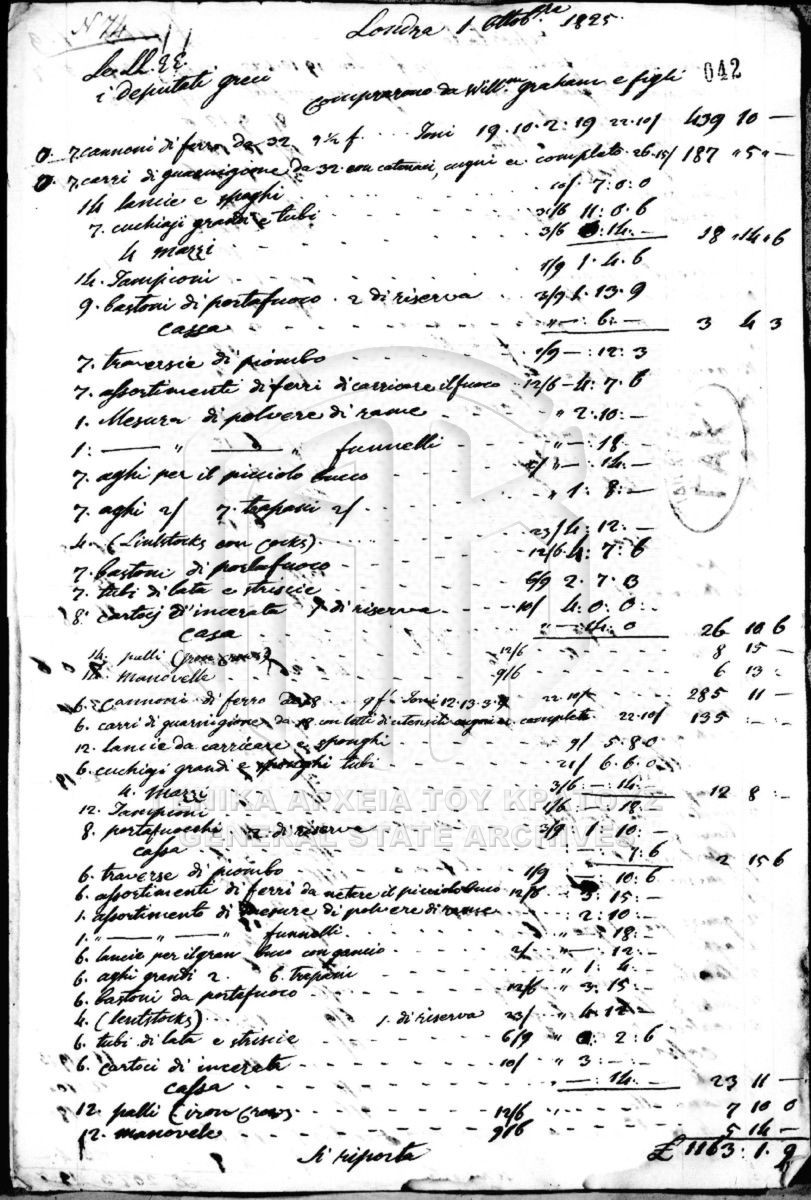 N 74
Londra 1. Ottob.ra 1825.
Le LL. EE.
i deputati greci
042
Comprarono da Will.m graham e figli
7. cannoni di ferro da 32. 9 1/2 f. Toni 19. 10. 2: 19 22.10/ 439 10 —
7. carri di guarnigione da 32 con catenari, cugni & completo 26.15/ 187 " 5 " —
14 lancie e sponghi 10/ 7: 0: 0
7. cuchiaji grandi e tubi 11: 0. 6
4 Mazzi 3/6 : 14: — 18 " 14 " 6
14. Tampioni 1/9 1. 4. 6
9. bastoni di portafuoco. 2 di riserva 3/9 1. 13. 9
cassa " — : 6: — 3 4 3
7. traversie di piombo 1/9 — : 12: 3
7. assortimenti di ferri di carricare il fuoco 12/6 — 4: 7: 6
1. Mesura di polvere di rame " 2: 10: —
1: — " — " funnelli " — : 18 —
7. aghi per il picciolo buco 2/ — : 14: —
7. aghi 2/ 7. trapani 2/ " 1: 8: —
4. (Lintstocks con Cocks) 23/ 4: 12: —
7. bastoni di portafuoco 12/6. 4: 7: 6
7. tubi di lata e striscie 6/9 2. 7. 3
8. cartocj d'incerata 1 di riserva 10/ 4: 0: 0
Casa " — 14: 0 26 10 6
14. palli (iron crows) 12/6 8 15 —
14. Manovelle 9/6 6 13 —
6. Cannoni di ferro da 18 9 f. Toni 12. 13. 3. 22. 10/ 285 11 —
6. carri di guarnigione da 18 con completo 22. 10/ 135 — : —
12. lancie da carricare e sponghi 9/ 5. 8. 0
6. cuchiaj grandi e tubi 21/ 6. 6. 0
4. Mazzi 3/6 14: — 12 8 : —
12. Tampioni 1/6 — 18: —
8. portafuocchi 2. di riserva 3/9 1. 10. —
cassa 7: 6 2 15 6
6. traverse di piombo 1/9 — 10: 6
6. assortimenti di ferri da netere il picciolo buco 12/6 3: 15: —
1. assortimento di mesure di polvere di rame 2: 10: —
1. " — " — " funnelli " — : 18: —
6. lancie per il gran buco con gancio 2/ " — : 12: —
6. aghi grandi 2. 6. trepani " 1: 4: —
6. bastoni da portafuoco 12/6 " 3: 15: —
4. (lentstocks) 1. di riserva 23/ " 4: 12 —
6. tubi di lata e striscie 6/9 " 2: 6
6. cartoci di incerata 10/ " 3 — : —
cassa " — : 14. — 23 11 —
12. palli (iron Crows) 12/6 7 10 0
12. manovele 9/6 5 14 —
Si riporta £ 1163: 1. 9
ΓΑΚ
ΓΕΝΙΚΑ ΑΡΧΕΙΑ ΤΟΥ ΚΡΑΤΟΥΣ
GENERAL STATE ARCHIVES